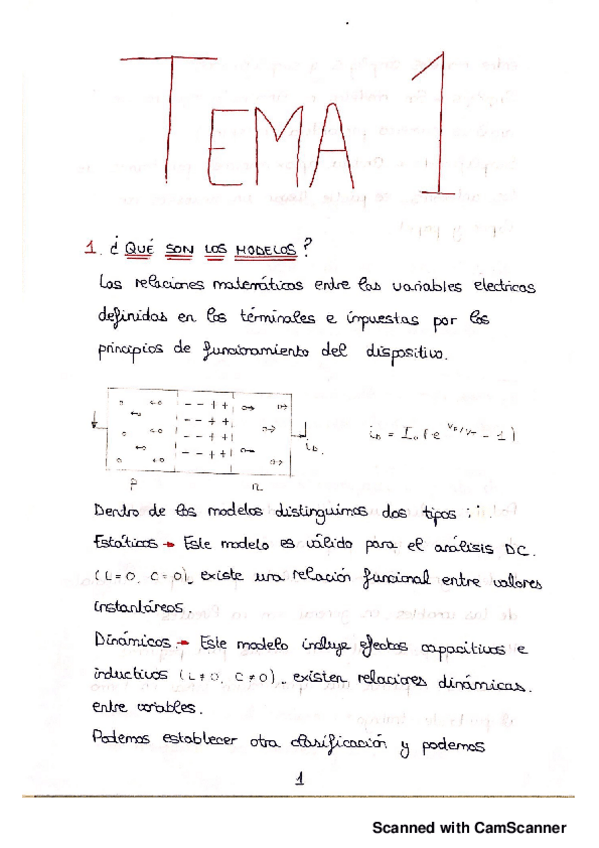 TEMA 1
1. ¿QUÉ SON LOS MODELOS?
Las relaciones matemáticas entre las variables electricas
definidas en los términales e inpuestas por los
principios de funcionamiento del dispositivo.
- - + +
- - + +
- - + +
- - + +
iD = Io (e^VD/VT - 1)
iD.
P n
Dentro de los modelos distinguimos dos tipos:
Estáticos → Este modelo es válido para el análisis DC.
(L=0, C=0), existe una relación funcional entre valores
instantáneos.
Dinámicos. → Este modelo incluye efectos capacitivos e
inductivos (L≠0, C≠0), existen relaciones dinámicas.
entre variables.
Podemos establecer otra clasificación y podemos
1
Scanned with CamScanner